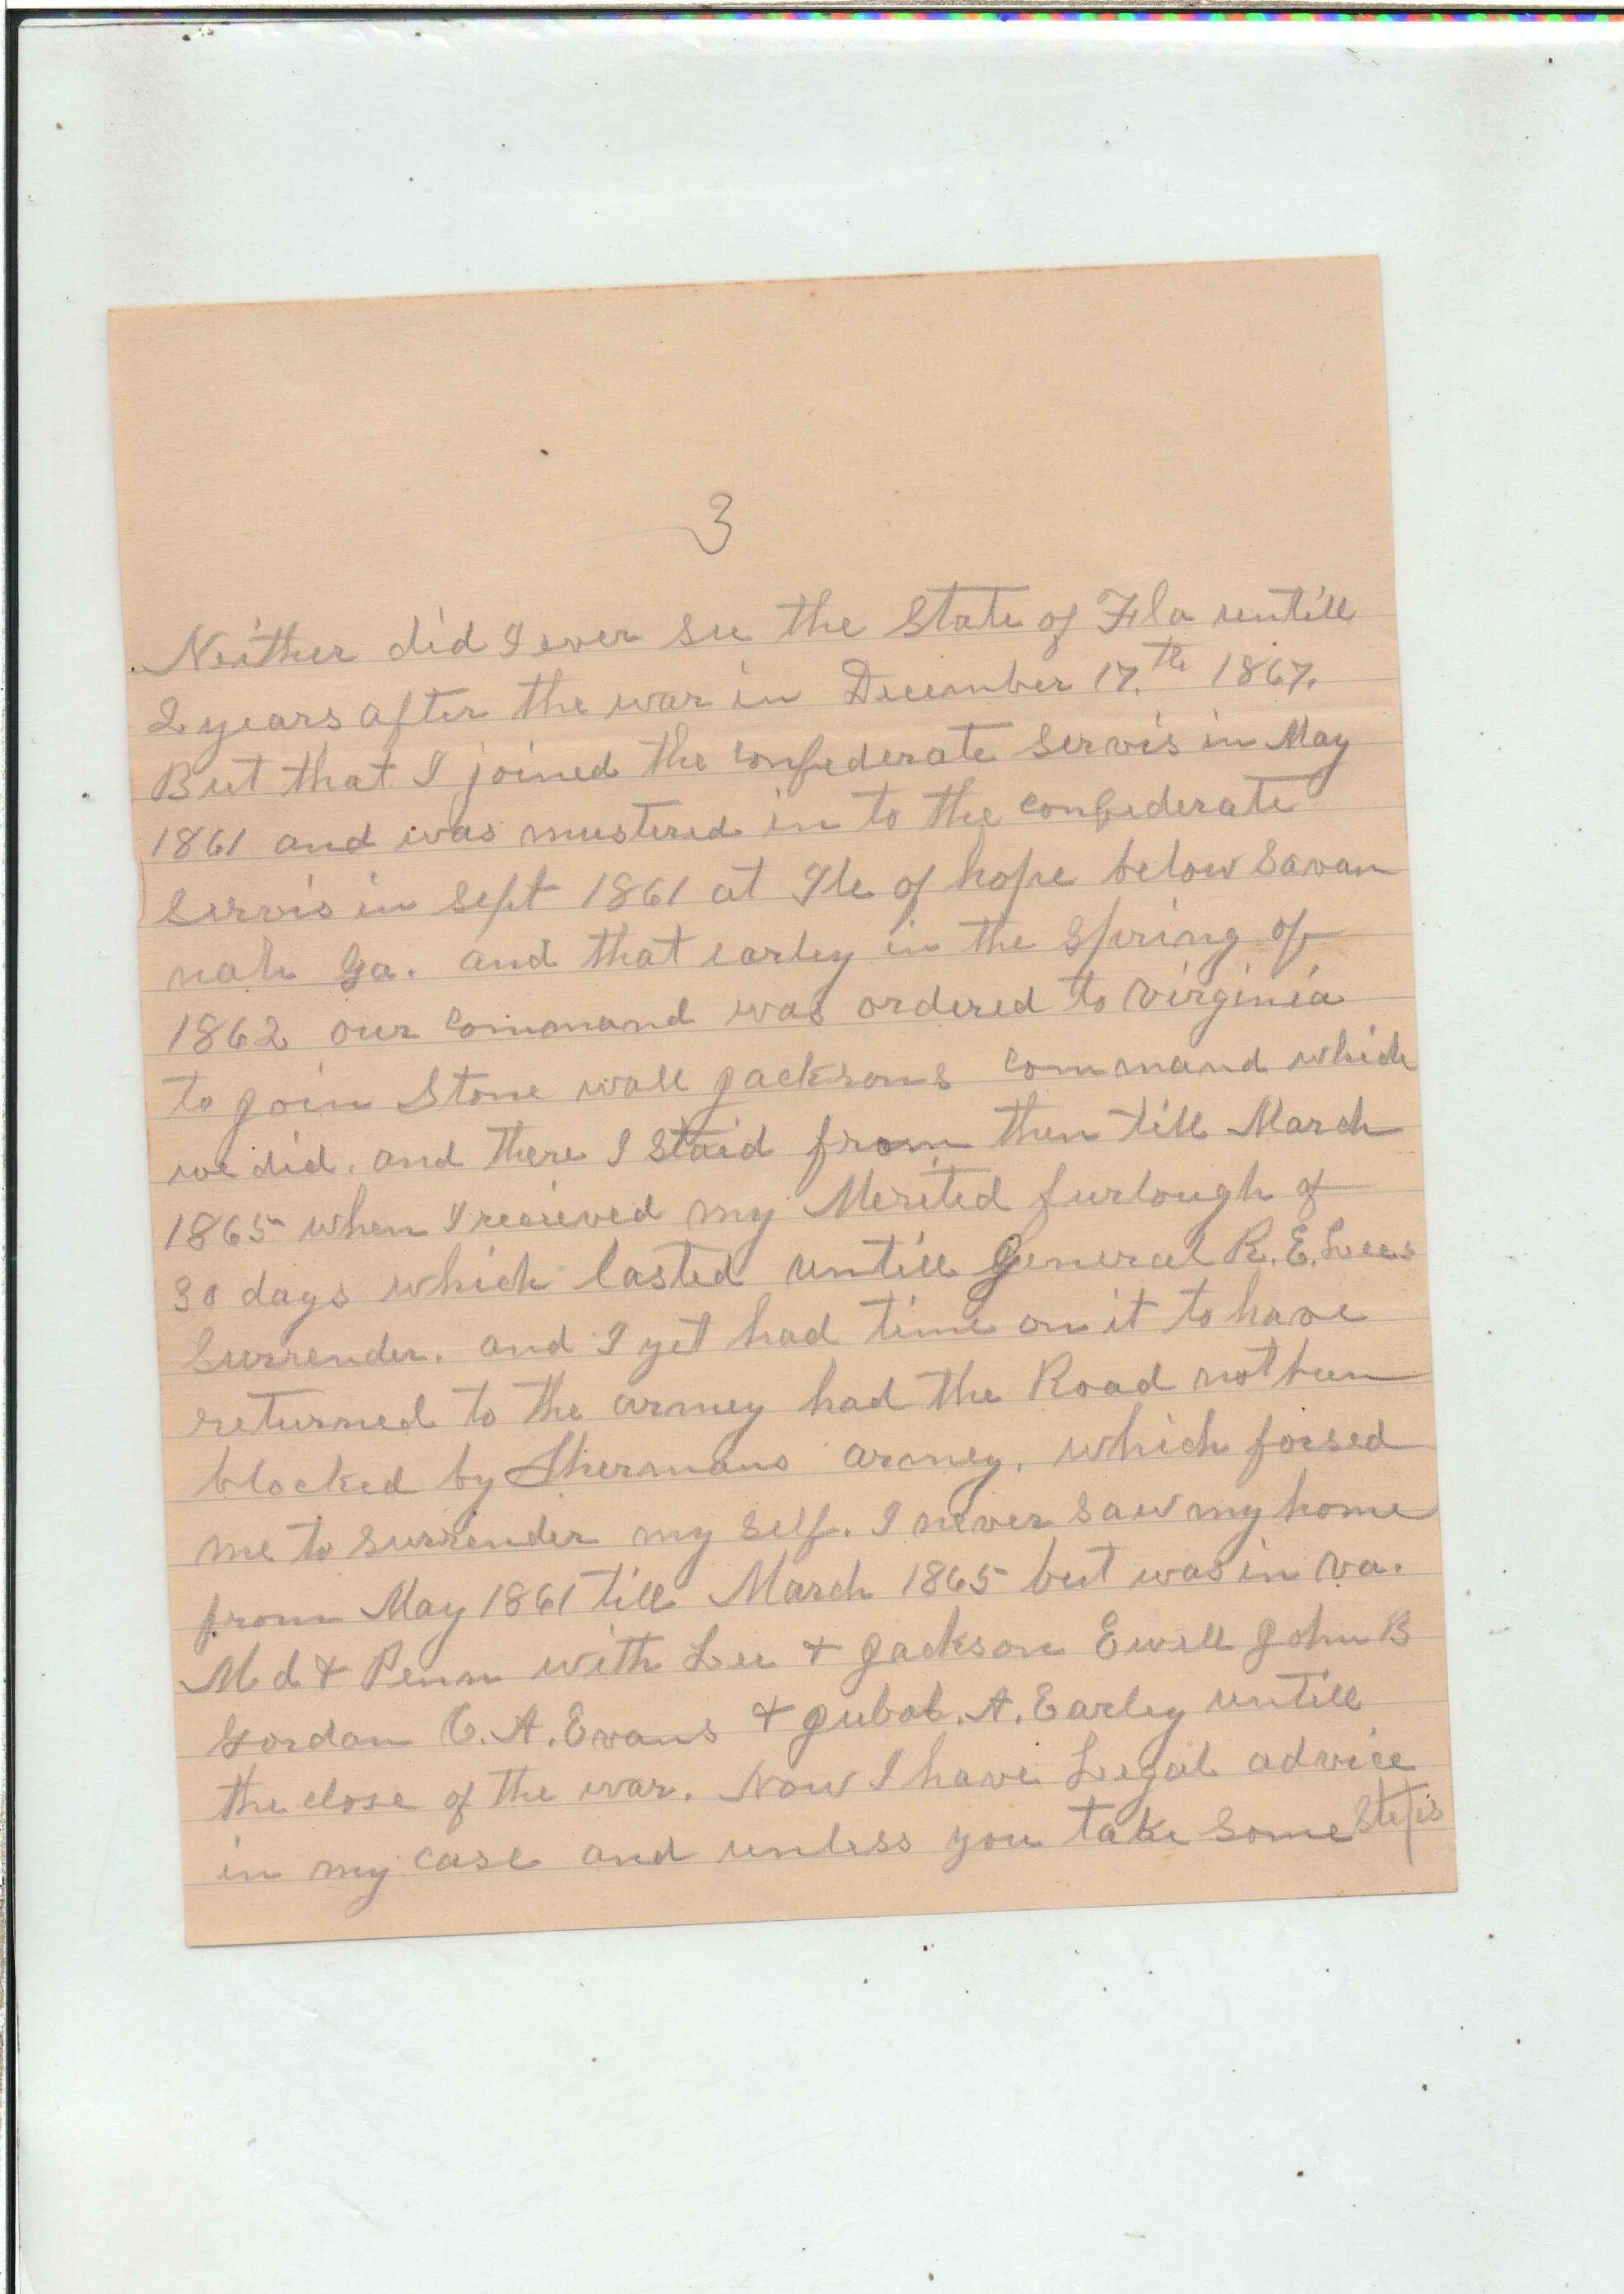 3
Neither did I ever see the State of Fla untill
2 years after the war in December 17.th 1867.
But that I joined the confederate servis in May
1861 and was mustered in to the confederate
servis in Sept 1861 at Ile of hope below Savan
nah Ga. and that earley in the spring of
1862 our command was ordered to virginia
to join Stone wall Jacksons command which
we did. and there I staid from then till March
1865 when I recieved my Merited furlough of
30 days which lasted untill General R. E. Lees
Surrender. and I yet had time on it to have
returned to the armey had the Road not been
blocked by Shermans armey. which forsed
me to surrender my self. I never saw my home
from May 1861 till March 1865 but was in va.
Md & Penn with Lee & Jackson Ewell John B
Gordan C. A. Evans & Jubal. A. Earley untill
the close of the war. Now I have Legal advice
in my case and unless you take some steps